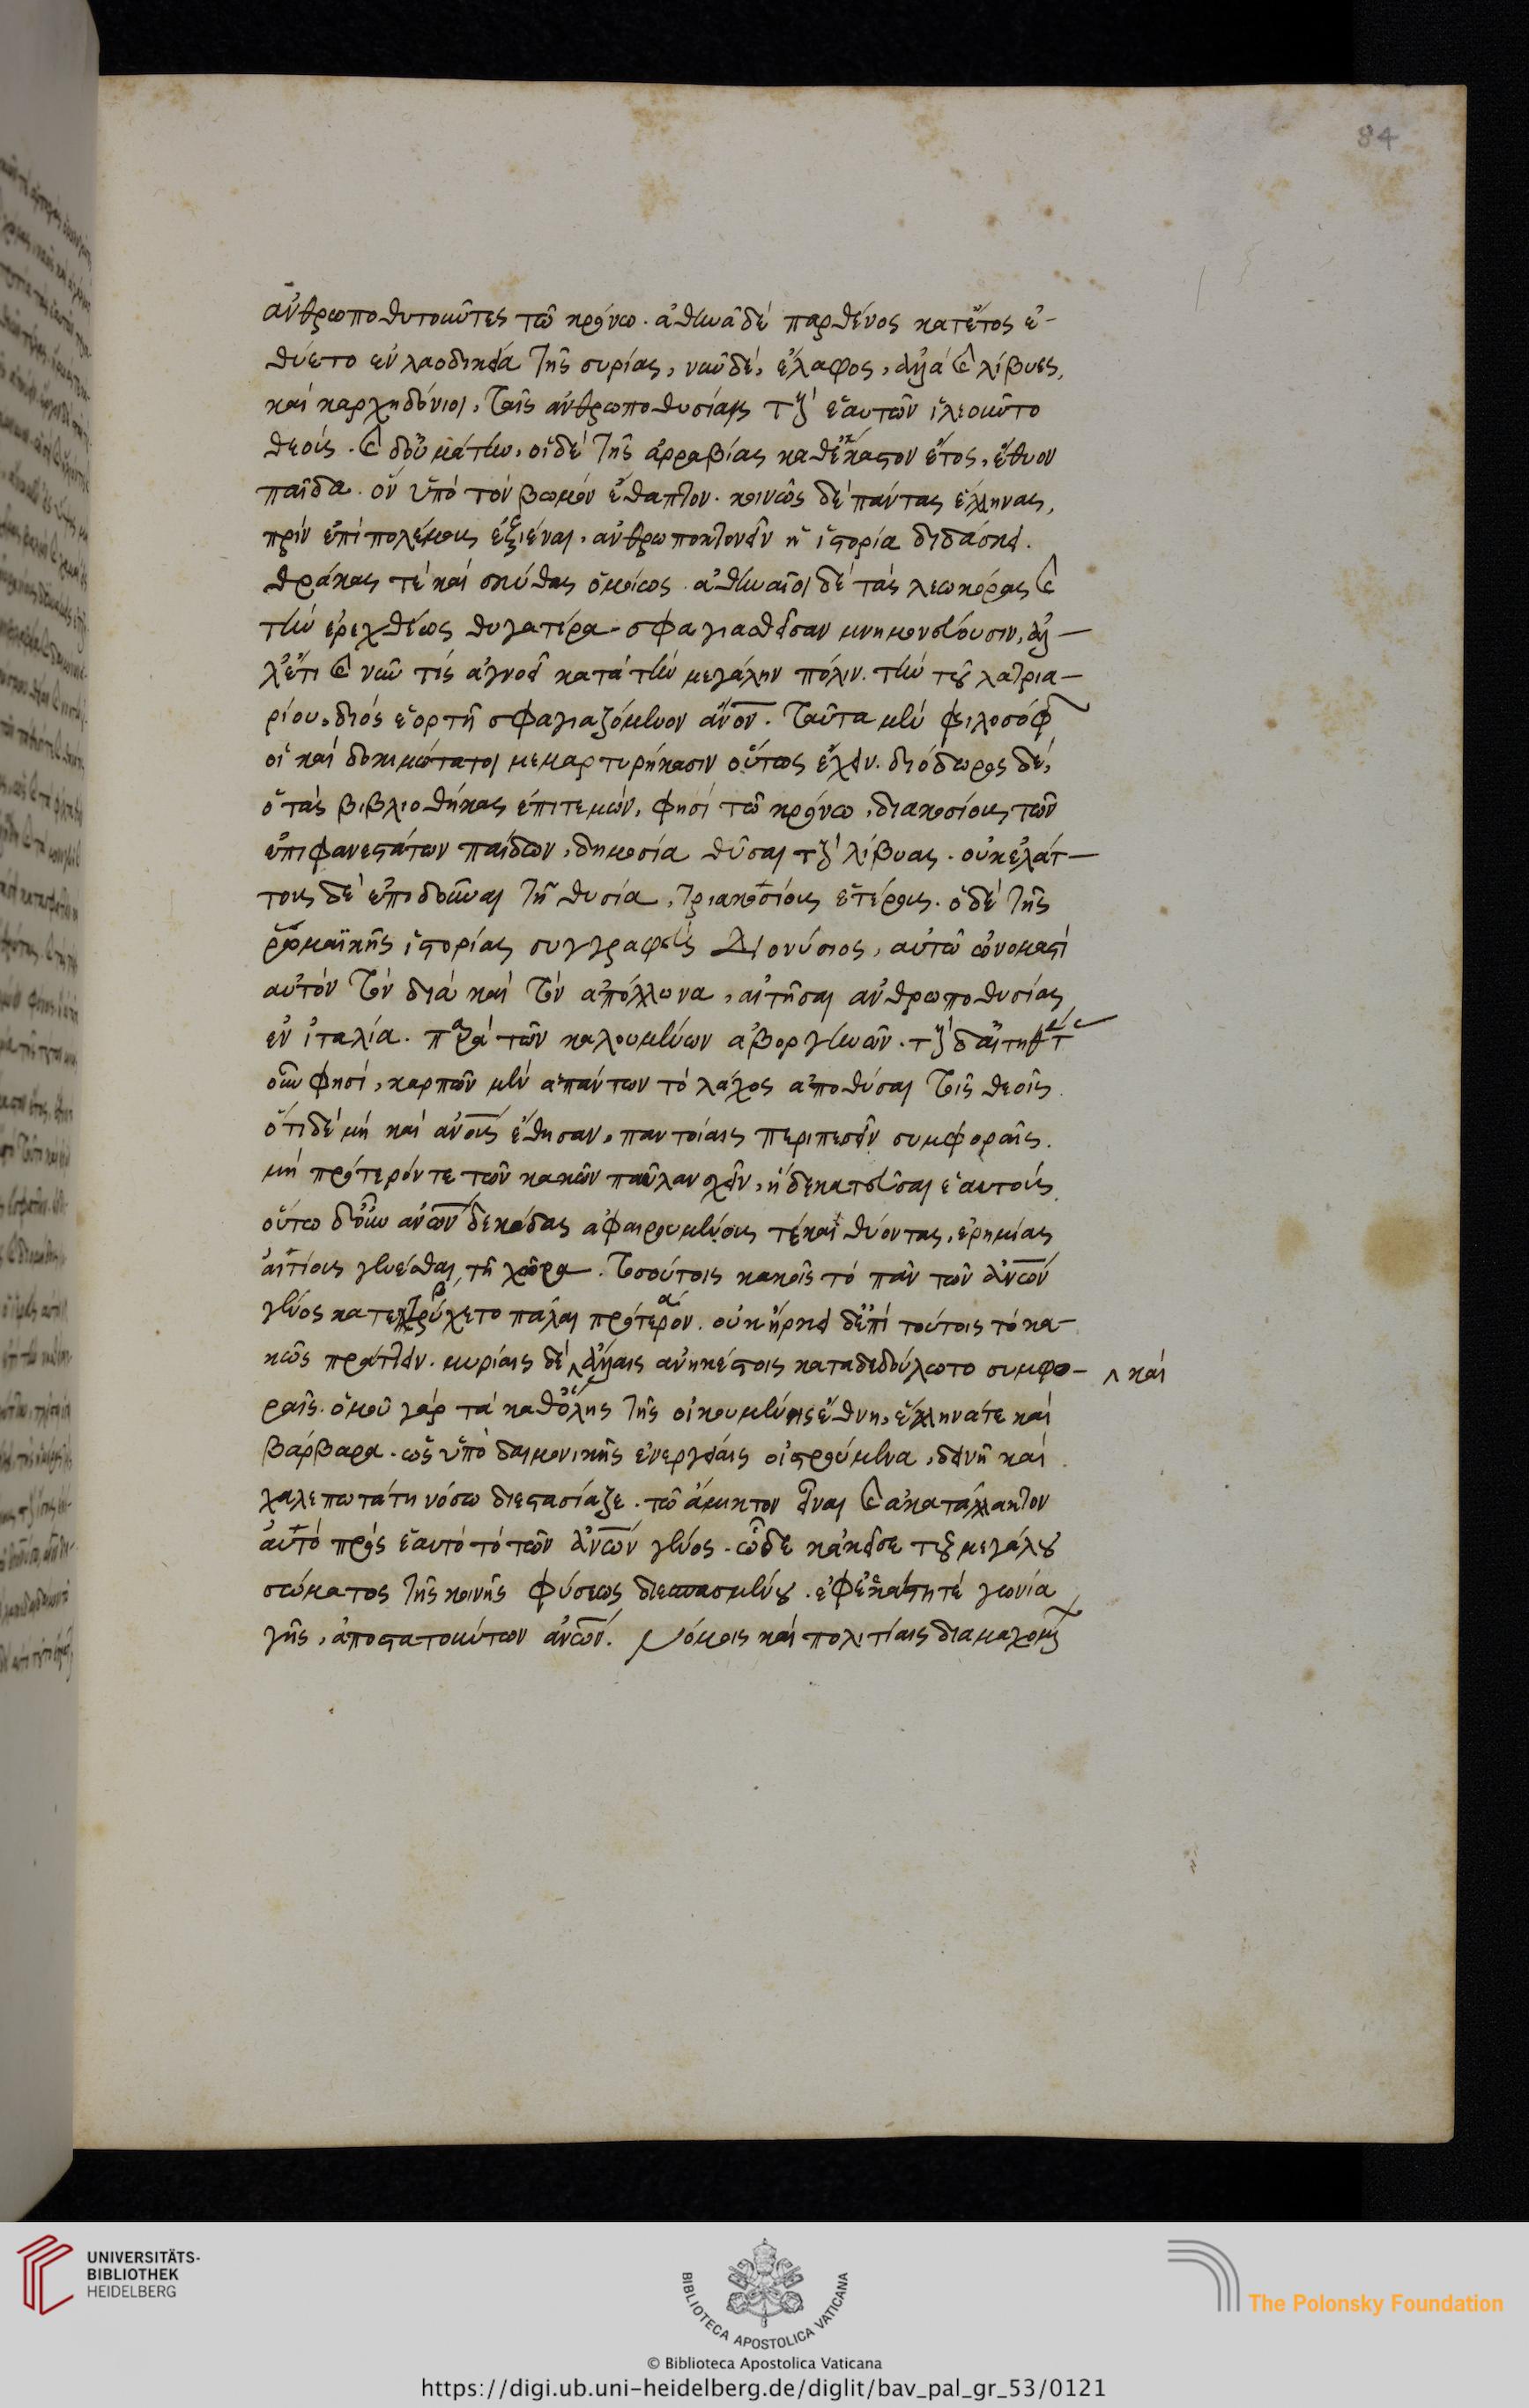 84
ἀνθρωποθυτοῦντες τῶ κρόνω. ἀθηνᾶ δέ παρθένος κατ' ἔτος ἐ-
θύετο ἐν λαοδικεία τῆς συρίας, νῦν δέ, ἔλαφος, ἀλλά καὶ λίβυες,
καί καρχηδόνιοι, ταῖς ἀνθρωποθυσίαις τούς ἑαυτῶν ἱλεοῦντο
θεούς. καὶ δουματίων. οἱ δέ τῆς ἀρραβίας καθ' ἕκαστον ἔτος, ἔθυον
παῖδα. ὃν ὑπό τόν βωμόν ἔθαπτον. κοινῶς δέ πάντας ἕλληνας,
πρίν ἐπί πολέμους ἐξιέναι, ἀνθρωποκτονεῖν ἡ ἱστορία διδάσκει.
θράκας τέ καί σκύθας ὁμοίως. ἀθηναῖοι δέ τάς λεωκόρας καὶ
τήν ἐρεχθέως θυγατέρα σφαγιασθεῖσαν μνημονεύουσιν, ἀλ-
λ' ἔτι καὶ νῦν τίς ἀγνοεῖ κατά τήν μεγάλην πόλιν. τήν τοῦ λατρια-
ρίου, διός ἑορτῆ σφαγιαζόμενον ἄνον. ταῦτα μέν φιλοσόφ
οἱ καί δοκιμώτατοι μεμαρτυρήκασιν οὕτως ἔχειν. διόδωρος δέ,
ὁ τάς βιβλιοθήκας ἐπιτεμών, φησί τῶ κρόνω, διακοσίους τῶν
ἐπιφανεστάτων παίδων, δημοσία θῦσαι τούς λίβυας. οὐκ ἐλάτ-
τους δέ ἐπιδοῦναι τῆ θυσία, τριακοσίους ἑτέρους. ὁ δέ τῆς
ῥωμαϊκῆς ἱστορίας συγγραφεύς Διονύσιος, αὐτῶ ὠνομαστί
αὐτόν τόν δία καί τόν ἀπόλλωνα, αἰτῆσαι ἀνθρωποθυσίας
ἐν ἰταλία. παρά τῶν καλουμένων ἀβοργίνων. τούς δ' αἰτηθέντ
οῦν φησί, καρπῶν μέν ἁπάντων τό λάχος ἀποθύσαι τοῖς θεοῖς
ὅτι δέ μή καί ἀνους ἔθησαν, παντοίαις περιπεσεῖν συμφοραῖς.
μή πρότερόν τε τῶν κακῶν παῦλαν σχεῖν, ἤ δεκατεῦσαι ἑαυτούς
οὕτω δ' οὖν ἀνων δεκάδας ἀφαιρουμένους τέ καί θύοντας, ἐρημίας
αἰτίους γενέσθαι, τῆ χώρα. τοσούτοις κακοῖς τό πᾶν τῶν ἀνων
γένος κατετρύχετο πάλαι πρότερον. οὐκ ἤρκει δ' ἐπί τούτοις τό κα-
κῶς πράττειν. μυρίαις δέ ‸ ἄλλαις ἀνηκέστοις καταδεδούλωτο συμφο- ‸ καί
ραῖς. ὁμοῦ γάρ τά καθ' ὅλης τῆς οἰκουμένης ἔθνη, ἕλληνά τε καί
βάρβαρα. ὡς ὑπό δαιμονικῆς ἐνεργείας οἰστρούμενα, δεινῆ καί
χαλεπωτάτη νόσω διεστασίαζε. τῶ ἄμικτον εἶναι καὶ ἀκατάλλακτον
αὐτό πρός ἑαυτό τό τῶν ἀνων γένος. ὧδε κἀκεῖσε τοῦ μεγάλου
σώματος τῆς κοινῆς φύσεως διεσπασμένου. ἐφ' ἑκάστη τέ γωνία
γῆς, ἀποστατούντων ἀνων. Νόμοις καί πολιτίαις διαμαχομ
UNIVERSITÄTS-
BIBLIOTHEK
HEIDELBERG
BIBLIOTECA APOSTOLICA VATICANA
The Polonsky Foundation
© Biblioteca Apostolica Vaticana
https://digi.ub.uni-heidelberg.de/diglit/bav_pal_gr_53/0121